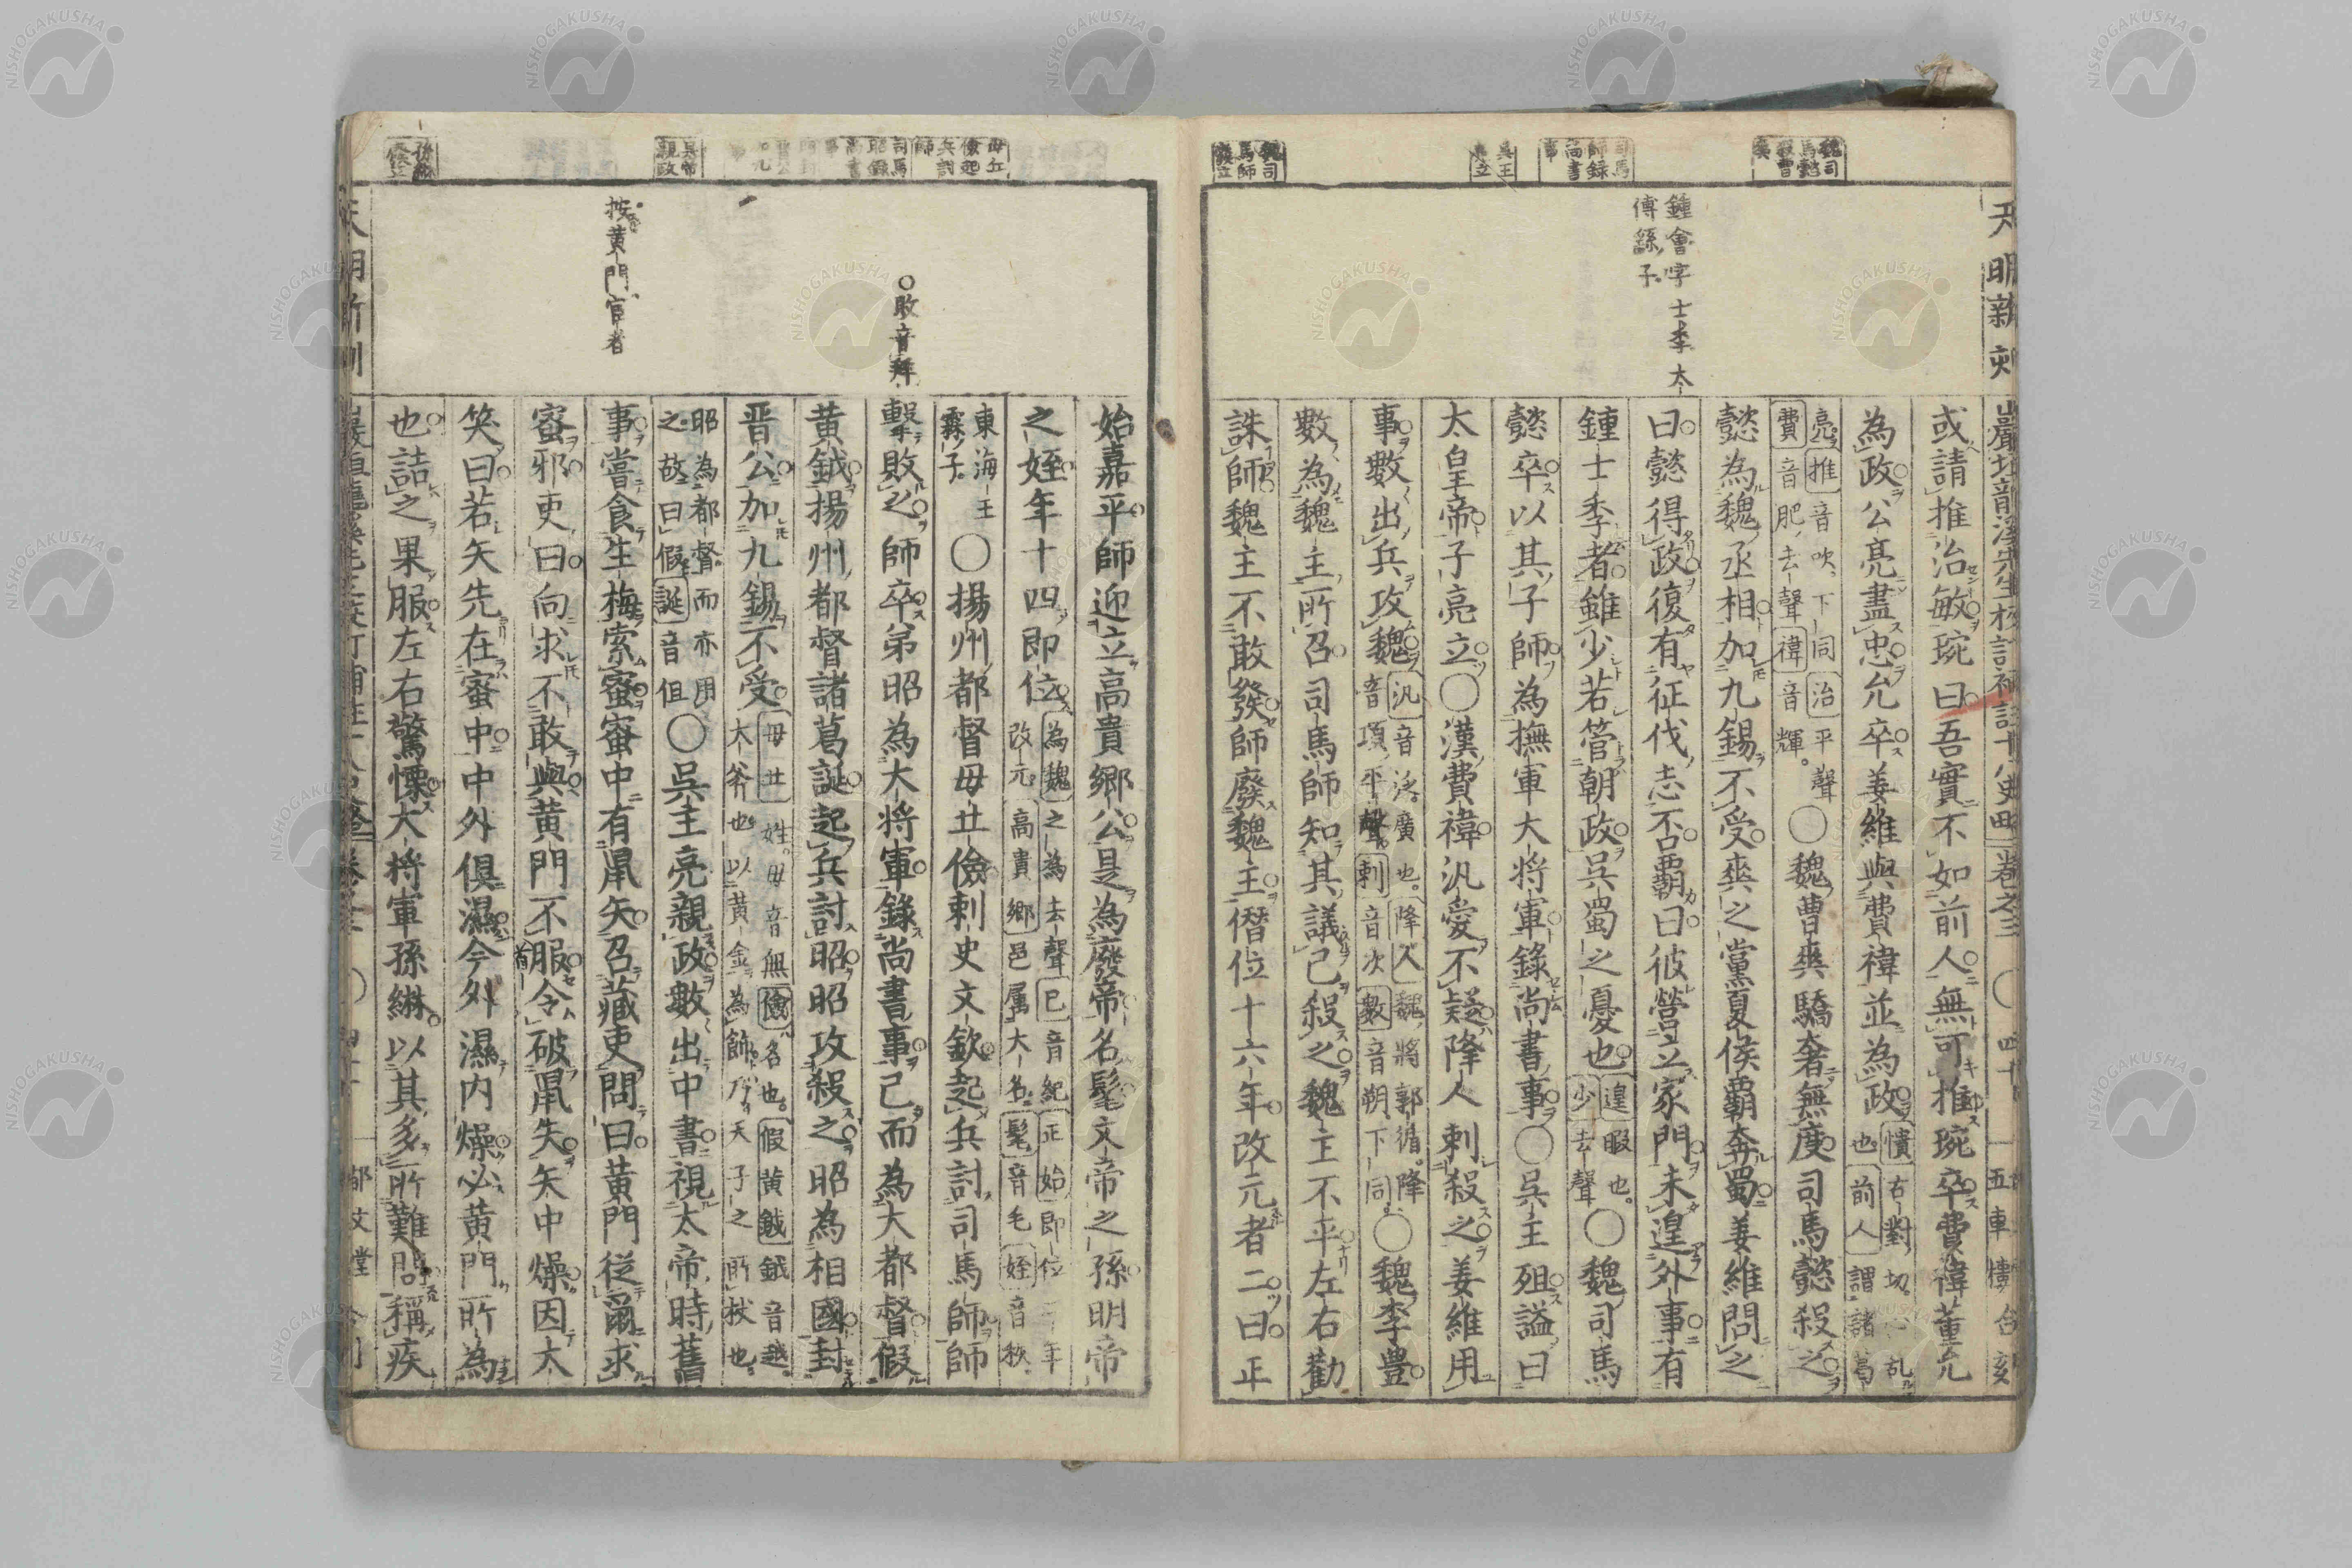 魏司
馬懿
殺曹
爽
司馬
師録
尚書
事
吳王
亮立
魏司
馬師
廢立
鍾會字士季太
傅繇子
天明新刻
巖垣龍溪先生校訂補註十八史略卷之三
五車樓合刻
或請推治敏琬曰吾實不如前人無可推琬卒費禕董允
為政公亮盡忠允卒姜維與費禕並為政憒古對切心乱
也前人謂諸葛
亮推音吹下同治平聲
費音肥去聲禕音輝
〇魏曹爽驕奢無度司馬懿殺之
懿為魏丞相加九錫不受爽之黨夏侯霸奔蜀姜維問之
曰懿得政復有征伐志不霸曰彼營立家門未遑外事有
鍾士季者雖少若管朝政吳蜀之憂也遑暇也
少去聲
〇魏司馬
懿卒以其子師為撫軍大將軍錄尚書事〇吳主殂謚曰
太皇帝子亮立〇漢費禕汎愛不疑降人刺殺之姜維用
事數出兵攻魏汎音泛廣也降人魏將郭循降
音項平聲刺音次數音朔下同
〇魏李豊
數為魏主所召司馬師知其議己殺之魏主不平左右勸
誅師魏主不敢發師廢魏主僭位十六年改元者二曰正
毋丘
儉起
兵討
師
司馬
昭錄
尚書
事
吳帝
親政
孫綝
〇敗音拜
按黄門宦者
始嘉平師迎立高貴鄉公是為廢帝名髦文帝之孫明帝
之姪年十四即位為魏之為去聲已音紀正始即位三年
改元高貴鄉邑属大名髦音毛姪音秩
東海王
霖子
〇揚州都督毋丘儉刺史文欽起兵討司馬師師
擊敗之師卒弟昭為大將軍錄尚書事已而為大都督假
黄鉞揚州都督諸葛誕起兵討昭昭攻殺之昭為相國封
晋公加九錫不受毋丘姓毋音無儉名也假黄鉞鉞音越
大斧也以黄金為飾乃天子之所杖也
昭為都督而亦用
之故曰假誕音但
〇吳主亮親政數出中書視太帝時舊
事嘗食生梅索蜜蜜中有鼠矢召藏吏問曰黄門從爾求
蜜邪吏曰向求不敢與黄門不服令破鼠矢矢中燥因大
笑曰若矢先在蜜中中外俱濕今外濕内燥必黄門所為
也詰之果服左右驚慄大將軍孫綝以其多所難問稱疾